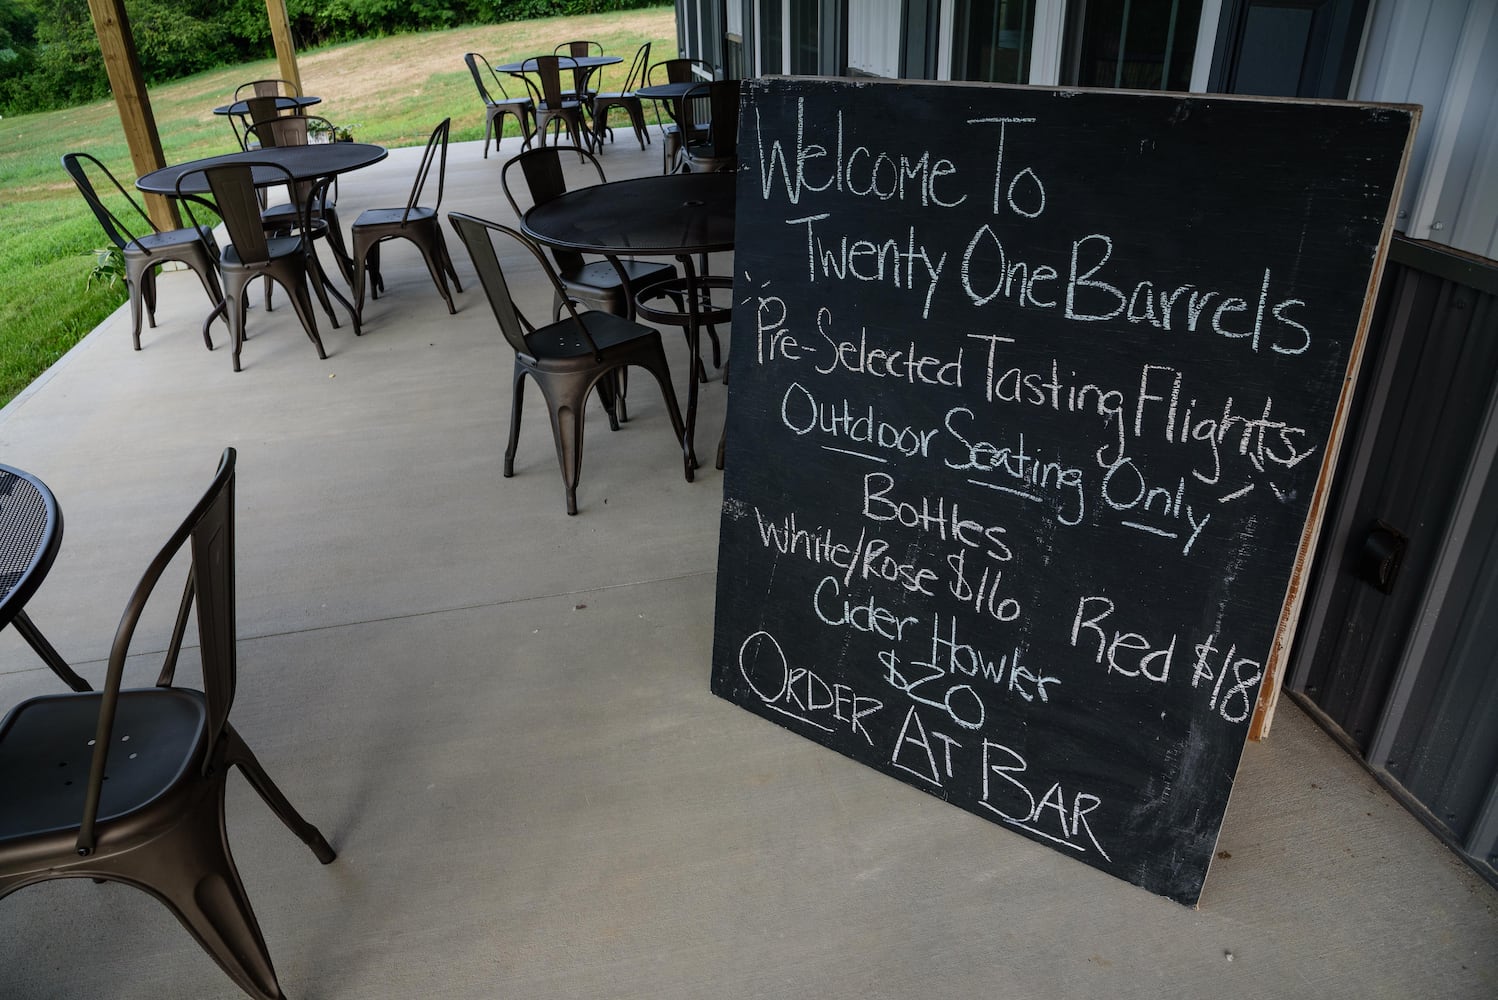 Welcome To
Twenty One Barrels
Pre-Selected Tasting Flights
Outdoor Seating Only
Bottles
White/Rose $16
Red $18
Cider Howler
$20
ORDER AT BAR